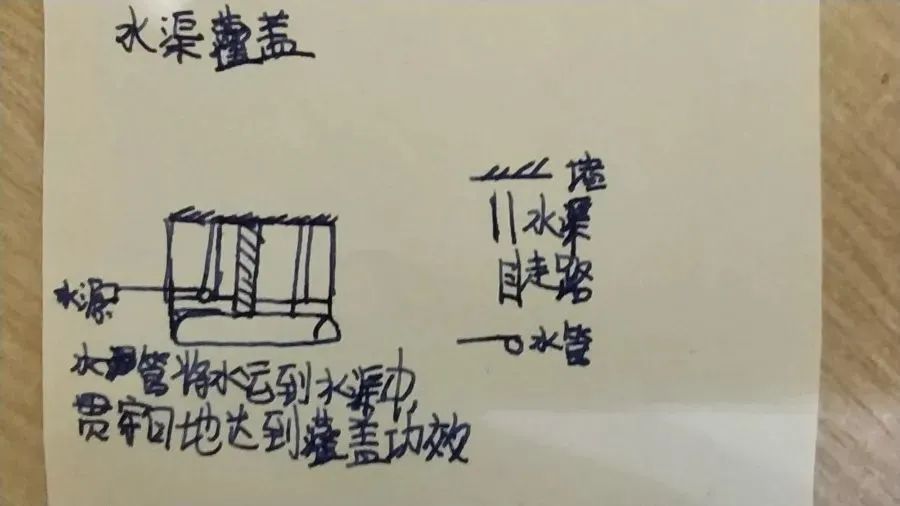 水渠盖
墙
水渠
走路
水源
水管
水管将水运到水渠中,
贯穿田地达到盖功效